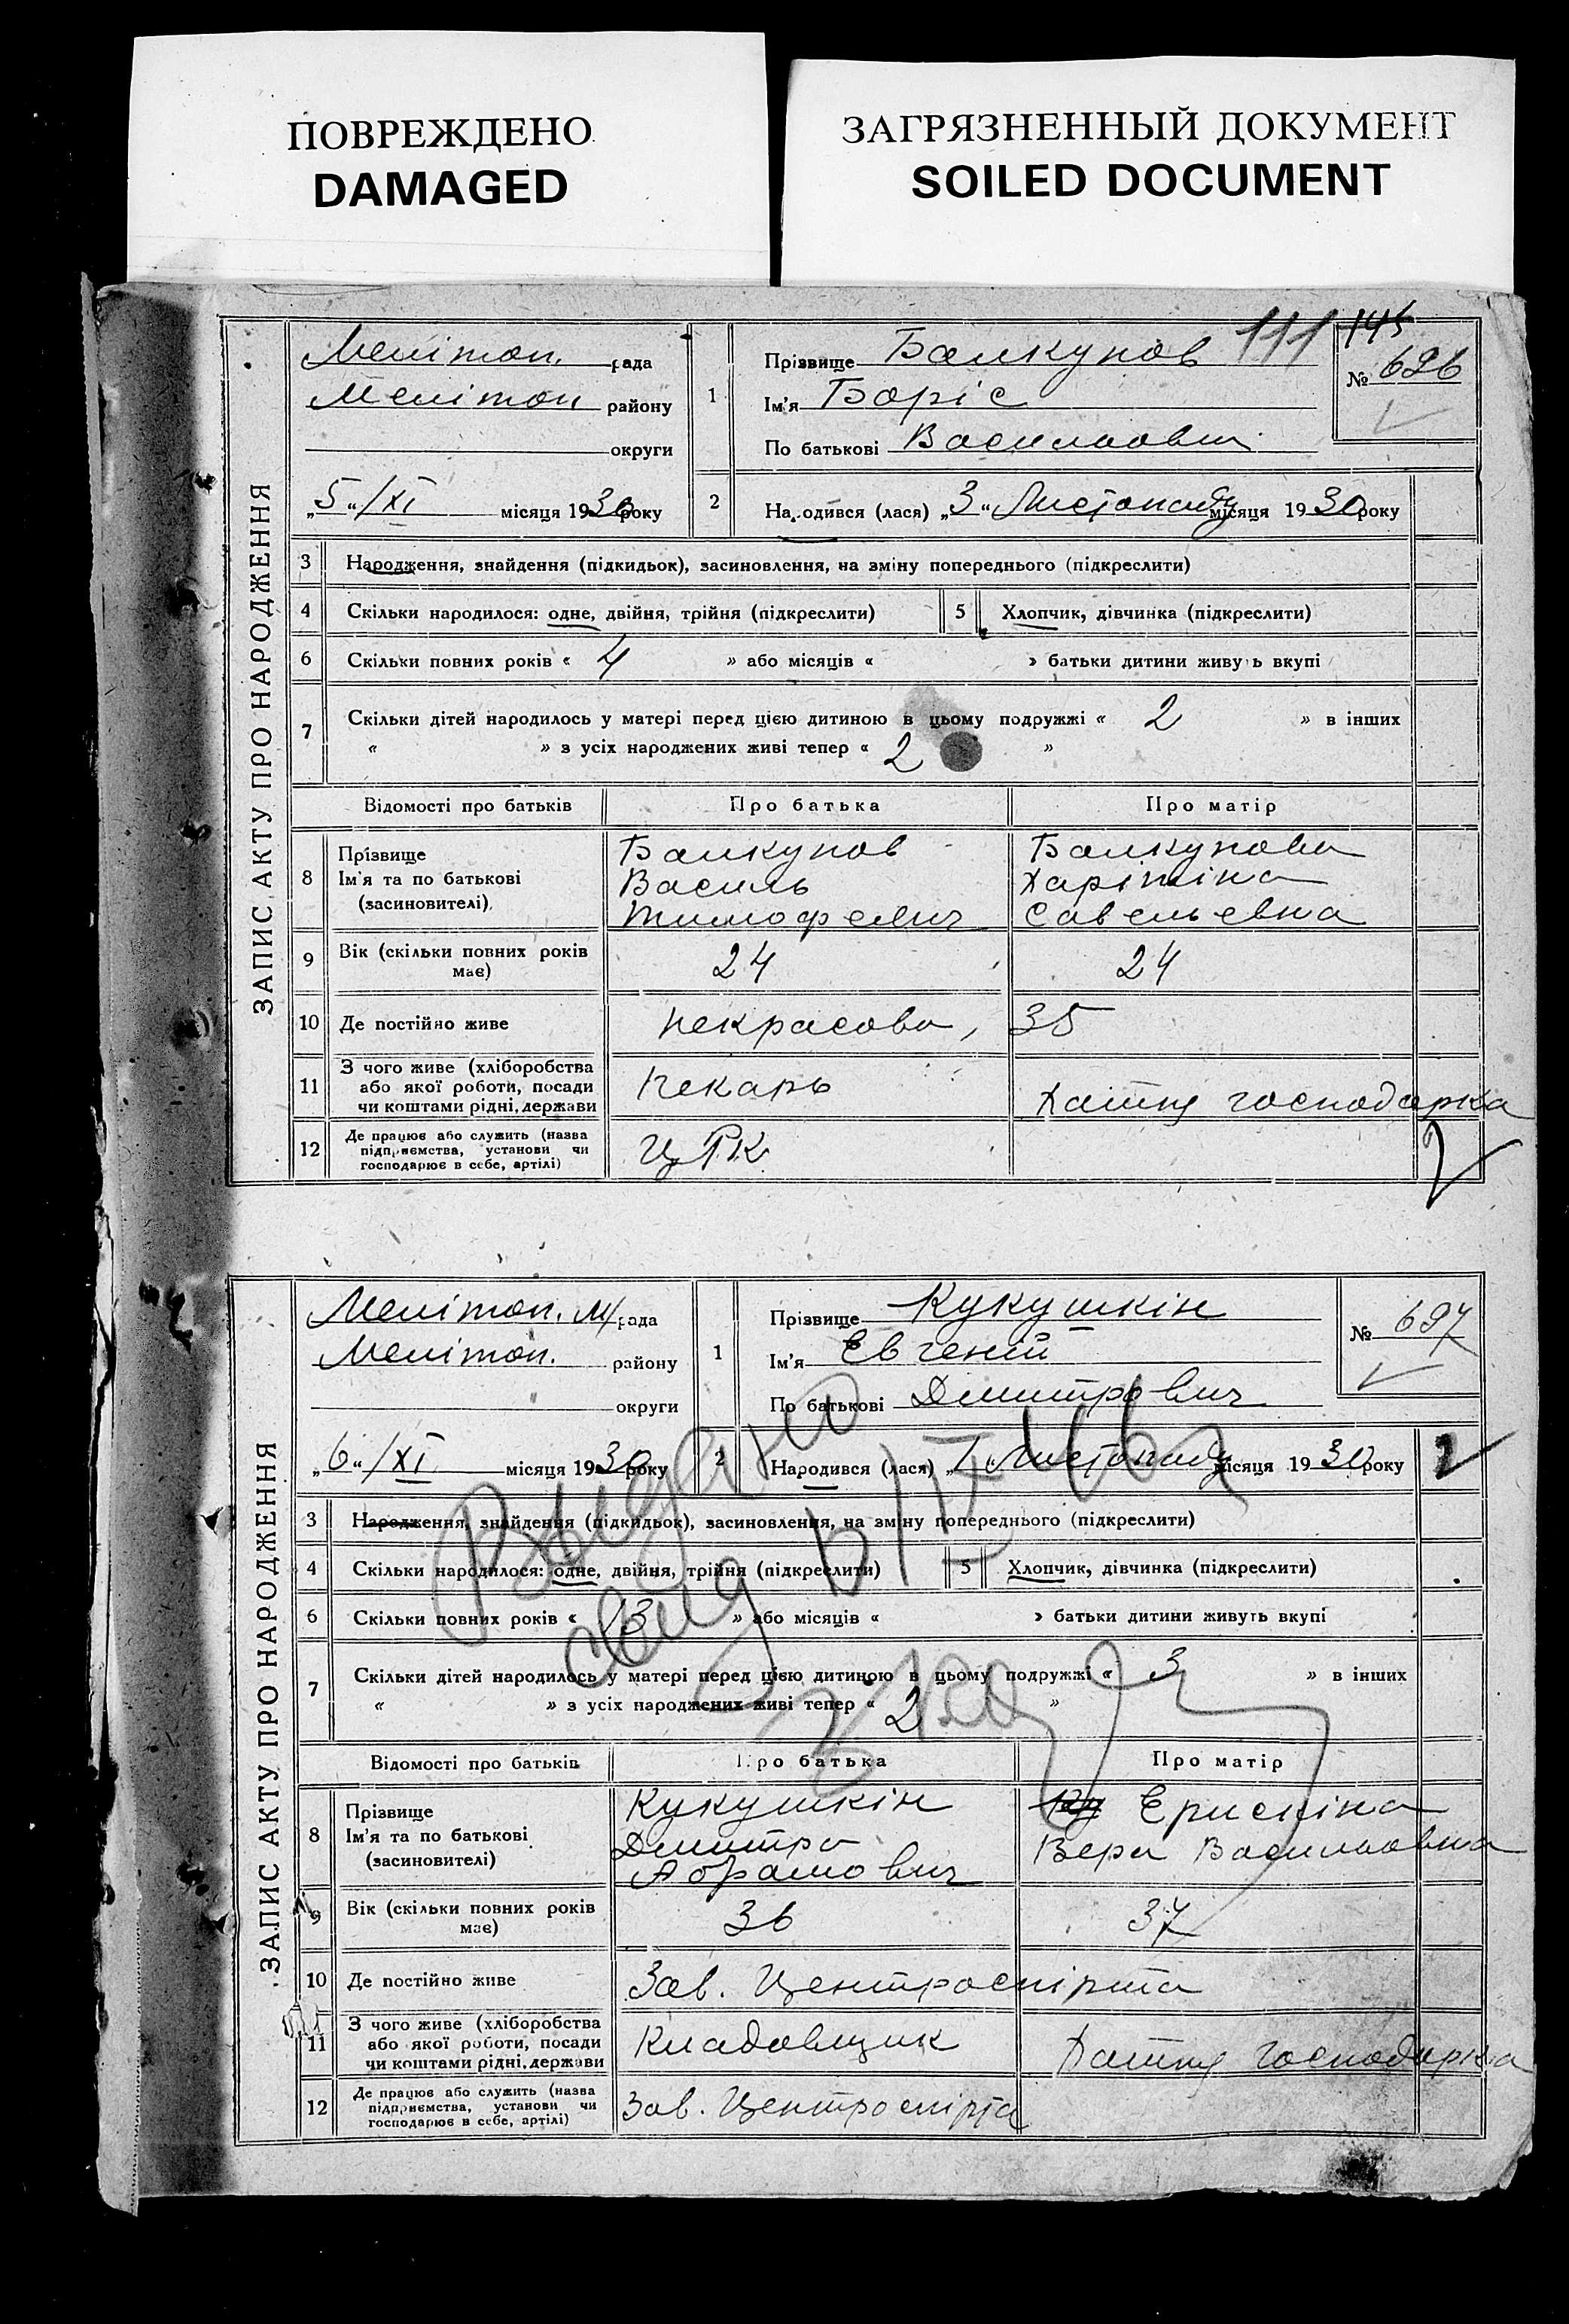 ПОВРЕЖДЕНО
DAMAGED
ЗАГРЯЗНЕННЫЙ ДОКУМЕНТ
SOILED DOCUMENT
ЗАПИС АКТУ ПРО НАРОДЖЕННЯ
Мелітоп. рада
Мелітоп району
округи
„5“/XI місяця 1930 року
1
Прізвище Балкунов
111 145
Ім'я Боріс
По батькові Васильович
№ 696
2 Народився (лася) „3“ Листопаду місяця 1930 року
3 Народження, знайдення (підкидьок), засиновлення, на зміну попереднього (підкреслити)
4 Скільки народилося: одне, двійня, трійня (підкреслити) 5 Хлопчик, дівчинка (підкреслити)
6 Скільки повних років « 4 » або місяців « » батьки дитини живуть вкупі
7 Скільки дітей народилось у матері перед цією дитиною в цьому подружжі « 2 » в інших
« » з усіх народжених живі тепер « 2 »
Відомості про батьків Про батька Про матір
8 Прізвище Балкунов Балкунова
Ім'я та по батькові Василь Харітіна
(засиновителі) Тимофеевич Савельевна
9 Вік (скільки повних років має) 24 24
10 Де постійно живе Некрасова, 35
11 З чого живе (хліборобства
або якої роботи, посади
чи коштами рідні, держави Пекарь Хатня господарка
12 Де працює або служить (назва
підприємства, установи чи
господарює в себе, артілі) ЦРК
ЗАПИС АКТУ ПРО НАРОДЖЕННЯ
Мелітоп. м/рада
Мелітоп. району
округи
„6“/XI місяця 1930 року
1
Прізвище Кукушкін
Ім'я Евгеній
По батькові Дмитрович
№ 697
2 Народився (лася) „1“ Листопаду місяця 1930 року
3 Народження, знайдення (підкидьок), засиновлення, на зміну попереднього (підкреслити)
4 Скільки народилося: одне, двійня, трійня (підкреслити) 5 Хлопчик, дівчинка (підкреслити)
6 Скільки повних років « 13 » або місяців « » батьки дитини живуть вкупі
7 Скільки дітей народилось у матері перед цією дитиною в цьому подружжі « 3 » в інших
« » з усіх народжених живі тепер « 2 »
Выдано
Відомості про батьків Про батька Про матір
8 Прізвище Кукушкін Ерискіна
Ім'я та по батькові Дмитро Вера Васильовна
(засиновителі) Абрамович
9 Вік (скільки повних років має) 36 37
10 Де постійно живе Зав. Центроспірта
11 З чого живе (хліборобства
або якої роботи, посади
чи коштами рідні, держави Кладовщик Хатня господарка
12 Де працює або служить (назва
підприємства, установи чи
господарює в себе, артілі) Зав. Центроспірта